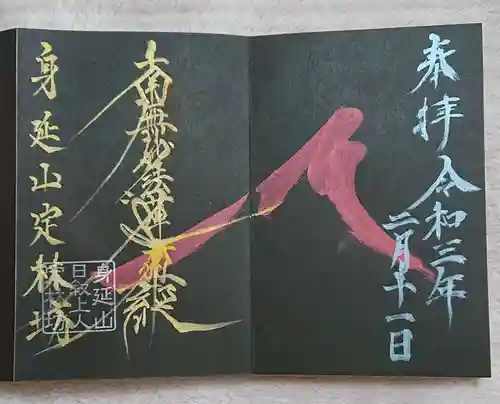 奉拝 令和三年
二月十一日
南無妙法蓮華経
身延山定林坊
身延山
日叙上人